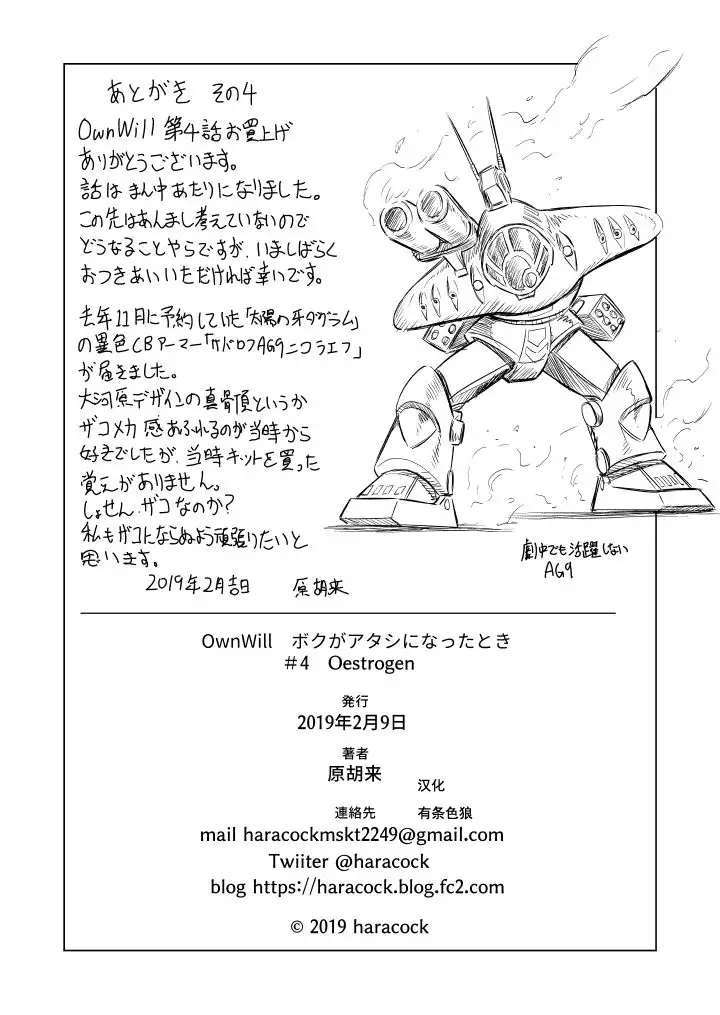 あとがき その4
OwnWill 第4話お買上げ
ありがとうございます。
話は まん中あたりになりました。
この先はあんまし考えていないので
どうなることやらですが、いましばらく
おつきあいいただければ幸いです。
去年11月に予約していた「太陽の牙ダグラム」
の異色CBアーマー「サバロフAG9ニコラエフ」
が届きました。
大河原デザインの真骨頂というか
ザコメカ感あふれるのが当時から
好きでしたが、当時キットを買った
覚えがありません。
しょせん、ザコなのか?
私もザコにならぬよう頑張りたいと
思います。
2019年2月吉日 原胡来
劇中でも活躍しない
AG9
OwnWill ボクがアタシになったとき
#4 Oestrogen
発行
2019年2月9日
著者
原胡来
汉化
連絡先 有条色狼
mail haracockmskt2249@gmail.com
Twiiter @haracock
blog https://haracock.blog.fc2.com
© 2019 haracock